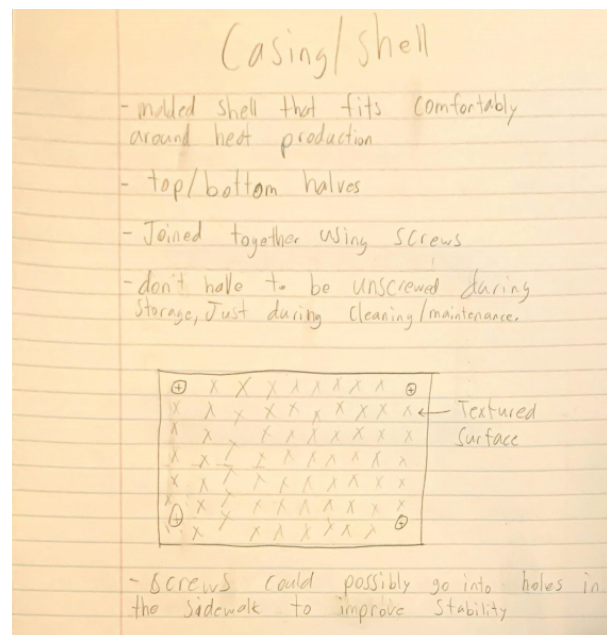 Casing/shell
- molded shell that fits comfortably
around heat production
- top/bottom halves
- Joined together using screws
- don't have to be unscrewed during
storage, Just during cleaning/maintenance.
Textured
Surface
- Screws could possibly go into holes in
the sidewalk to improve stability